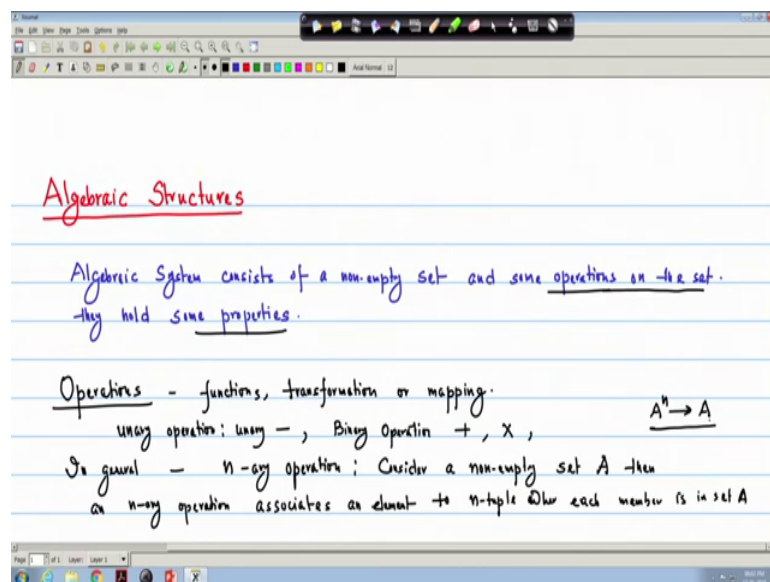 Journal
File Edit View Page Tools Options Help
Axial Normal 12
Algebraic Structures
Algebraic System consists of a non-empty set and some operations on the set.
they hold some properties.
Operations - functions, transformation or mapping.
A^n → A
unary operation: unary - , Binary Operation + , × ,
In general - n-ary operation : Consider a non-empty set A then
an n-ary operation associates an element to n-tuple where each member is in set A
Page 1 of 1 Layer: Layer 1